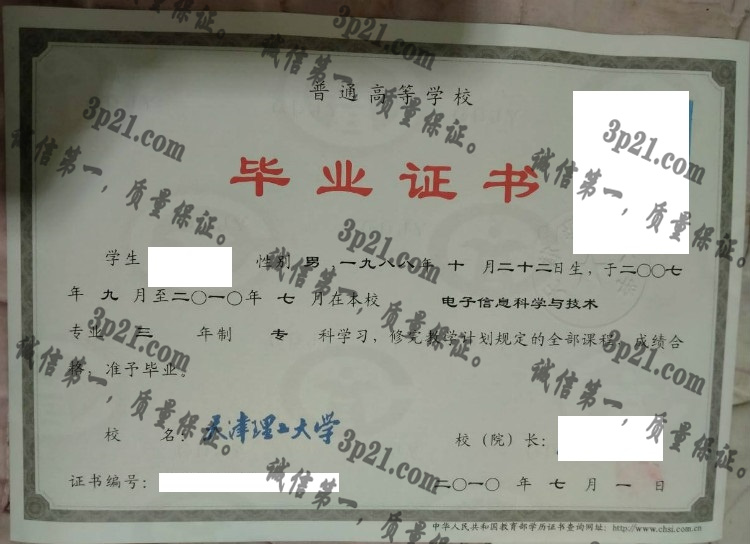 普通高等学校
毕业证书
学生 性别 男,一九八八年 十 月二十二日生,于二〇〇七
年 九 月至二〇一〇年 七 月在本校 电子信息科学与技术
专业 三 年制 专 科学习,修完教学计划规定的全部课程,成绩合
格,准予毕业。
校 名:天津理工大学 校(院)长:
证书编号: 二〇一〇 年 七 月 一 日
中华人民共和国教育部学历证书查询网址:http://www.chsi.com.cn
3p21.com
诚信第一,质量保证。
3p21.com
诚信第一,质量保证。
3p21.com
诚信第一,质量保证。
3p21.com
诚信第一,质量保证。
3p21.com
诚信第一,质量保证。
3p21.com
诚信第一,质量保证。
3p21.com
诚信第一,质量保证。
3p21.com
诚信第一,质量保证。